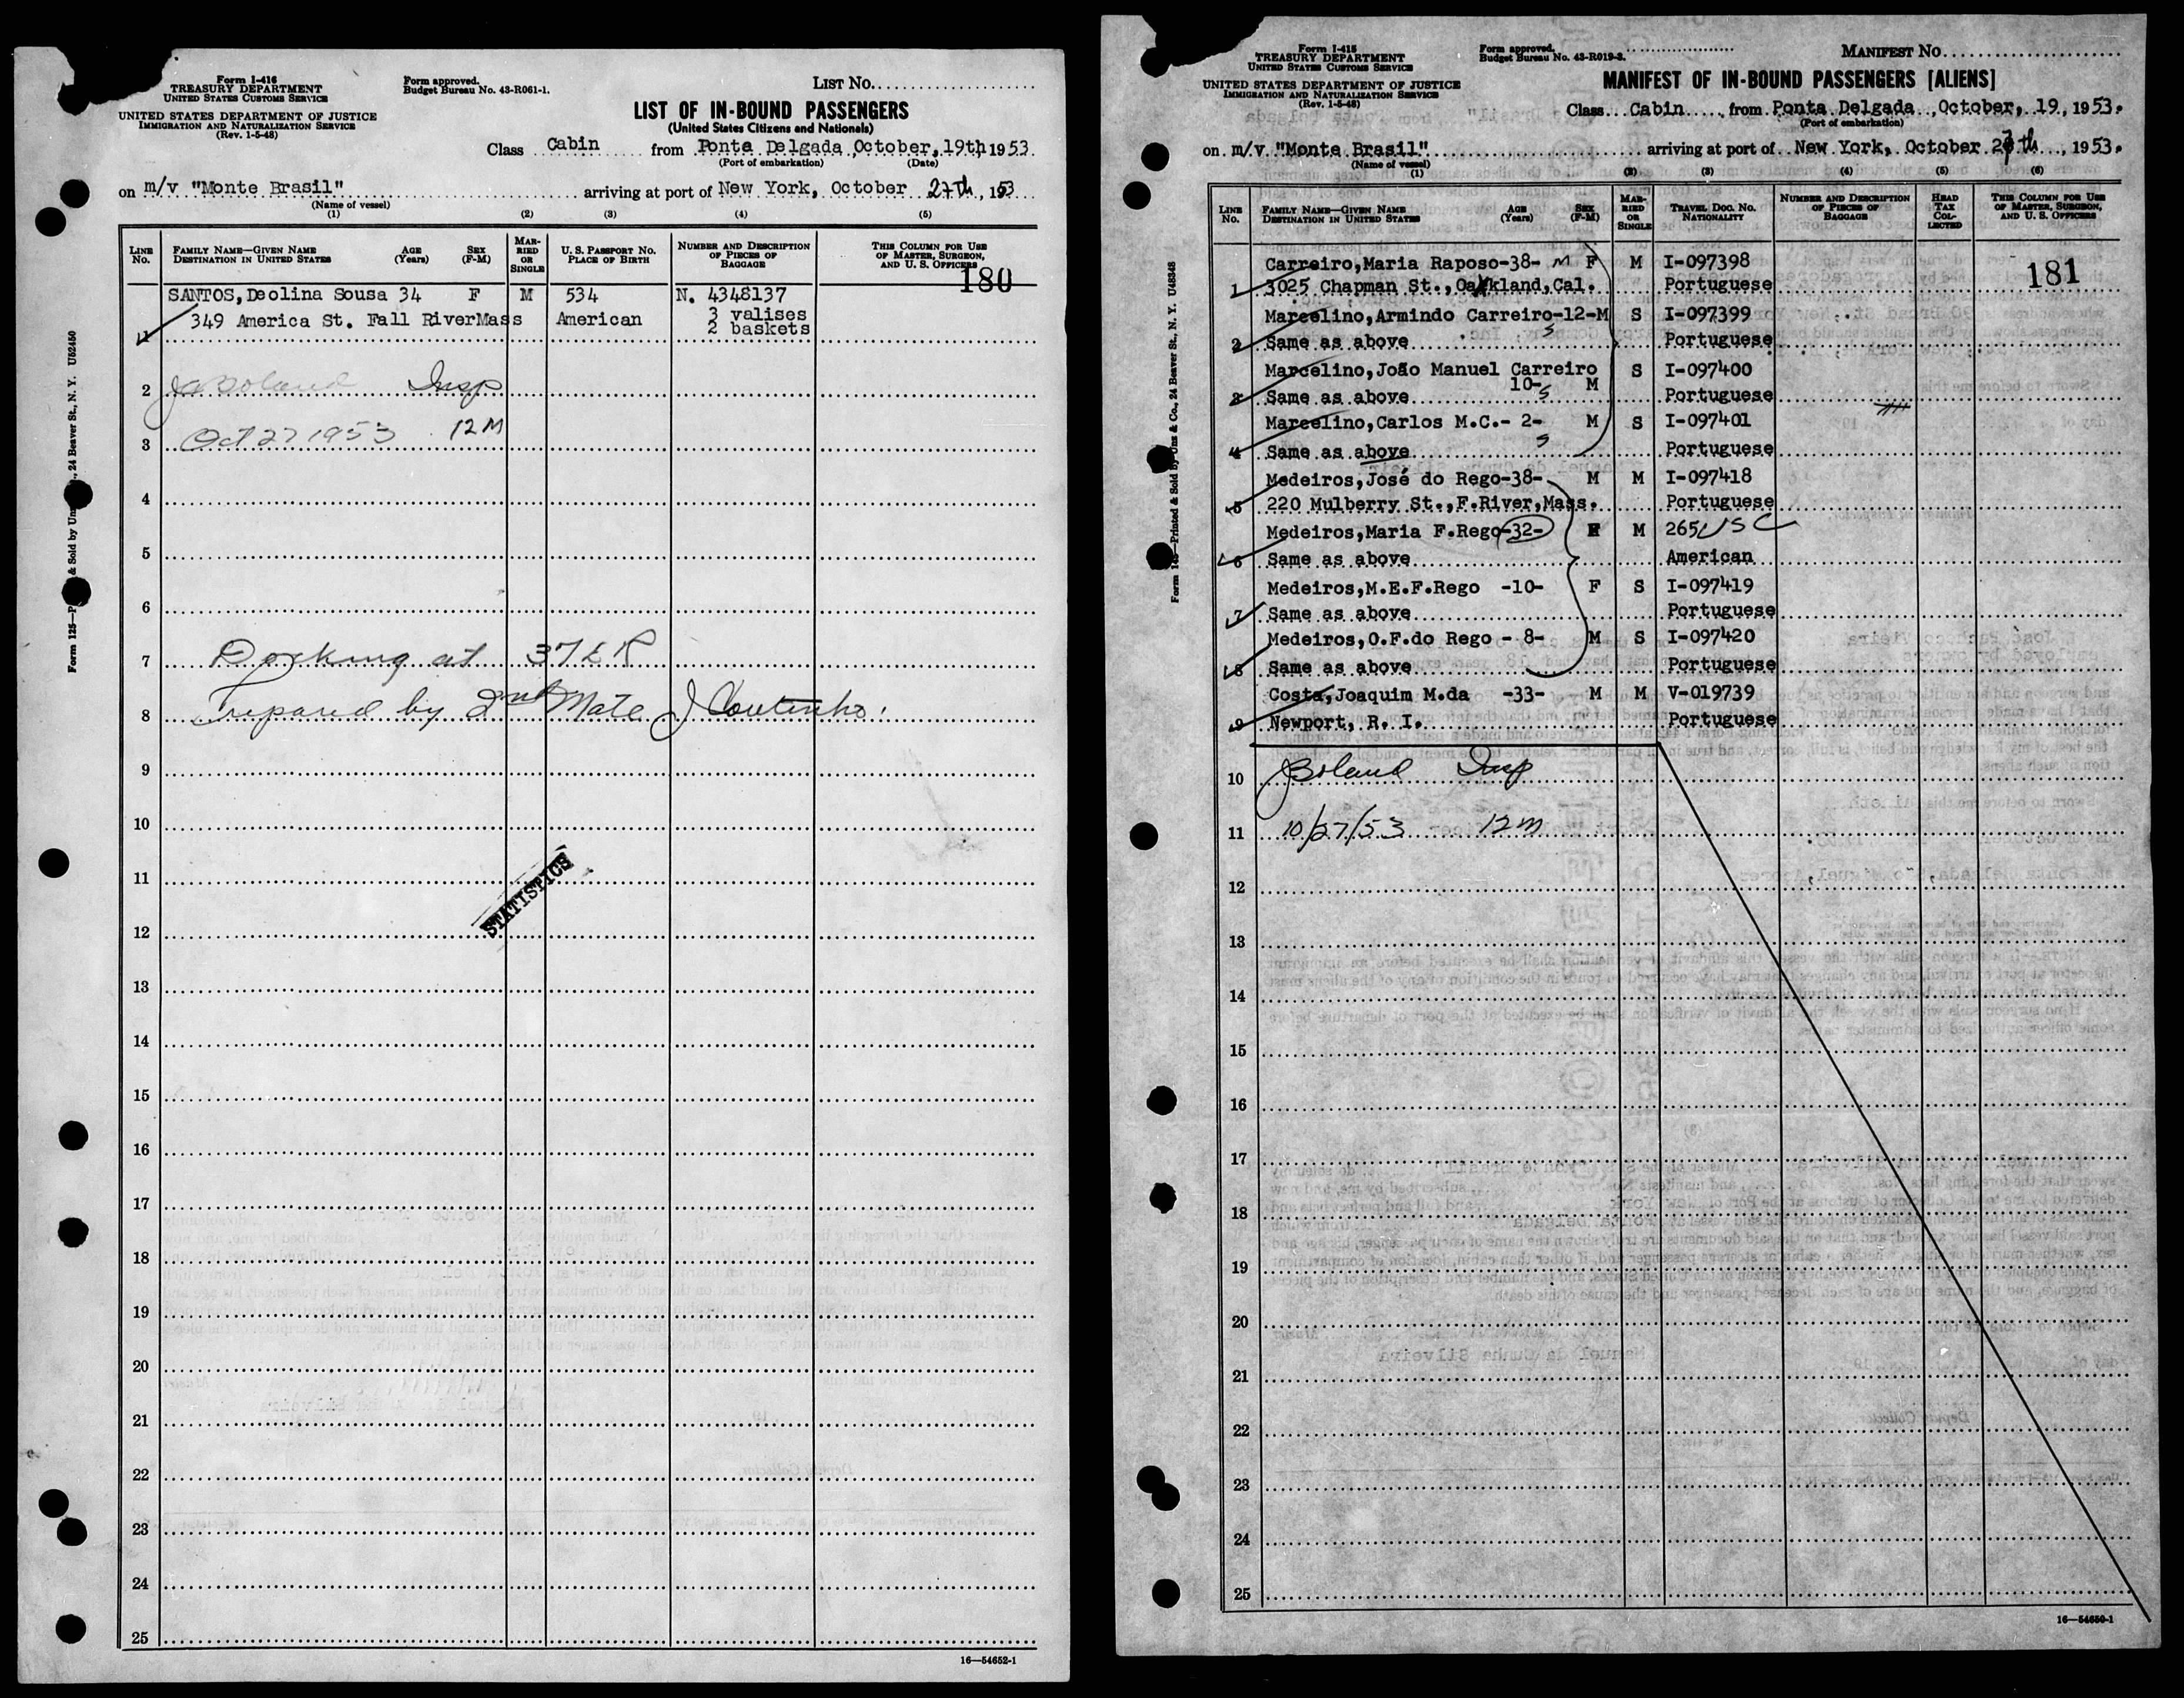 Form I-416
TREASURY DEPARTMENT
UNITED STATES CUSTOMS SERVICE
UNITED STATES DEPARTMENT OF JUSTICE
IMMIGRATION AND NATURALIZATION SERVICE
(Rev. 1-5-48)
Form approved.
Budget Bureau No. 43-R061-1.
LIST NO.
LIST OF IN-BOUND PASSENGERS
(United States Citizens and Nationals)
Class Cabin from Ponta Delgada, October, 19th, 1953.
(Port of embarkation) (Date)
on m/v "Monte Brasil" arriving at port of New York, October 27th, 1953
(Name of vessel)
(1) (2) (3) (4) (5)
LINE NO. FAMILY NAME—GIVEN NAME DESTINATION IN UNITED STATES AGE (Years) SEX (F-M) MARRIED OR SINGLE U. S. PASSPORT NO. PLACE OF BIRTH NUMBER AND DESCRIPTION OF PIECES OF BAGGAGE THIS COLUMN FOR USE OF MASTER, SURGEON, AND U. S. OFFICERS
180
SANTOS, Deolina Sousa 34 F M 534 N. 4348137
349 America St. Fall RiverMass American 3 valises
1 2 baskets
2 Boland Insp
3 Oct 27 1953 12M
4
5
6
7 Docking at 37 E R
8 Prepared by 2nd Mate J Coutinho.
9
10
11
STATISTICS
12
13
14
15
16
17
18
19
20
21
22
23
24
25
16—54652-1
Form approved.
Budget Bureau No. 43-R019-3.
MANIFEST NO.
Form I-415
TREASURY DEPARTMENT
UNITED STATES CUSTOMS SERVICE
UNITED STATES DEPARTMENT OF JUSTICE
IMMIGRATION AND NATURALIZATION SERVICE
(Rev. 1-5-48)
MANIFEST OF IN-BOUND PASSENGERS [ALIENS]
Class Cabin, from Ponta Delgada, October, 19, 1953.
(Port of embarkation)
on m/v "Monte Brasil" arriving at port of New York, October 27th, 1953.
(Name of vessel)
(1) (2) (3) (4) (5) (6)
LINE NO. FAMILY NAME—GIVEN NAME DESTINATION IN UNITED STATES AGE (Years) SEX (F-M) MARRIED OR SINGLE TRAVEL DOC. NO. NATIONALITY NUMBER AND DESCRIPTION OF PIECES OF BAGGAGE HEAD TAX COLLECTED THIS COLUMN FOR USE OF MASTER, SURGEON, AND U. S. OFFICERS
Carreiro,Maria Raposo-38- M F M I-097398 181
1 3025 Chapman St., Oakland, Cal. Portuguese
Marcelino,Armindo Carreiro-12-M S I-097399
2 Same as above S Portuguese
Marcelino,João Manuel Carreiro S I-097400
10- M
3 Same as above S Portuguese
Marcelino,Carlos M.C.- 2- M S I-097401
4 Same as above S Portuguese
Medeiros,José do Rego-38- M M I-097418
5 220 Mulberry St.,F.River,Mass. Portuguese
Medeiros,Maria F.Rego-32- F M 265 USC
6 Same as above American
Medeiros,M.E.F.Rego -10- F S I-097419
7 Same as above Portuguese
Medeiros,O.F.do Rego - 8- M S I-097420
8 Same as above Portuguese
Costa,Joaquim M.da -33- M M V-019739
9 Newport, R. I. Portuguese
10 Boland Insp
11 10/27/53 12m
12
13
14
15
16
17
18
19
20
21
22
23
24
25
16—54650-1